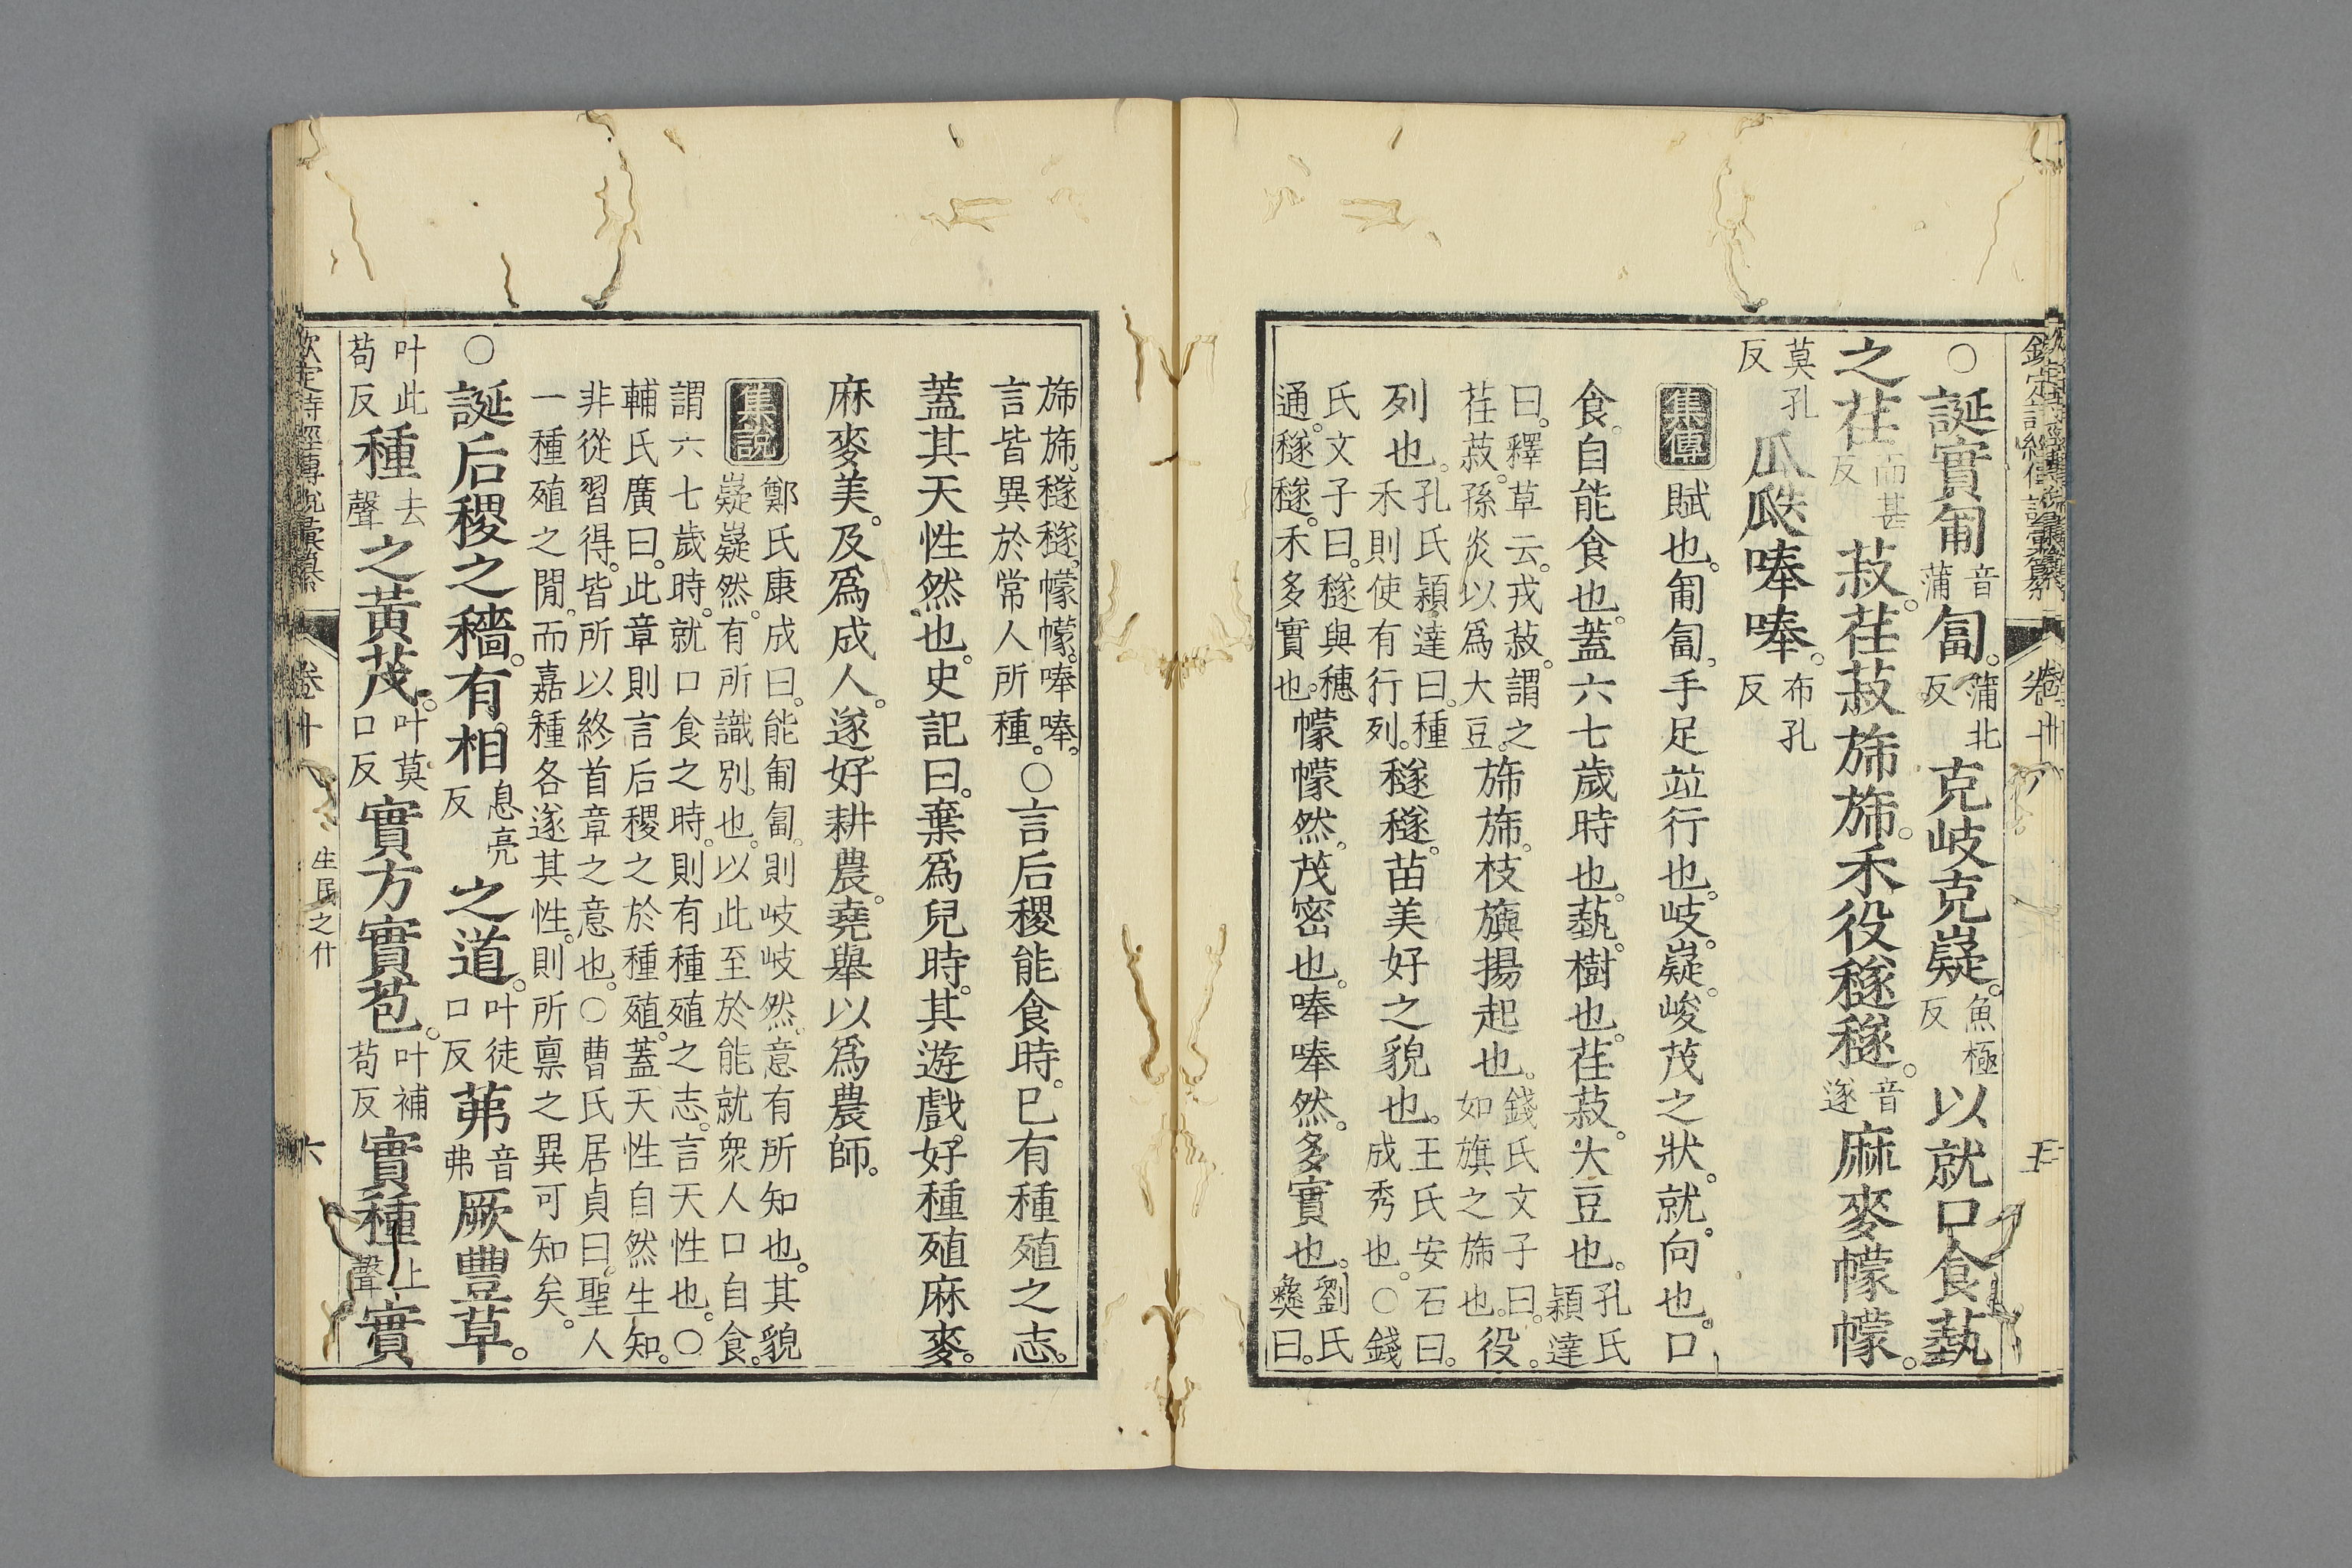 欽定詩經傳說彙纂 卷十八 五
○誕實匍音蒲匐。蒲北反克岐克嶷。魚極反以就口食蓺
之荏而甚反菽。荏菽旆旆。禾役穟穟。音遂麻麥幪幪。
莫孔反瓜瓞唪唪。布孔反
集傳 賦也。匍匐、手足竝行也。岐。嶷。峻茂之狀。就。向也。口
食。自能食也。蓋六七歲時也。蓺。樹也。荏菽。大豆也。孔氏穎達
曰。釋草云。戎菽。謂之荏菽。孫炎以爲大豆。旆旆。枝旟揚起也。錢氏文子曰。如旗之旆也。役。
列也。孔氏穎達曰。種禾則使有行列。穟穟。苗美好之貌也。王氏安石曰。成秀也。○錢
氏文子曰。穟與穗通。穟穟。禾多實也。幪幪然。茂密也。唪唪然。多實也。劉氏彝曰。
旆旆。穟穟。幪幪。唪唪。言皆異於常人所種。○言后稷能食時。已有種殖之志。
蓋其天性然也。史記曰。棄爲兒時。其遊戲。好種殖麻麥。
麻麥美。及爲成人。遂好耕農。堯舉以爲農師。
集說 鄭氏康成曰。能匍匐。則岐岐然。意有所知也。其貌
嶷嶷然。有所識別也。以此至於能就衆人口自食。
謂六七歲時。就口食之時。則有種殖之志。言天性也。○
輔氏廣曰。此章則言后稷之於種殖。蓋天性自然生知。
非從習得。皆所以終首章之意也。○曹氏居貞曰。聖人
一種殖之閒。而嘉種各遂其性。則所稟之異可知矣。
○誕后稷之穡。有相息亮反之道。叶徒口反茀音弗厥豐草。
叶此苟反種去聲之黃茂。叶莫口反實方實苞。叶補苟反實種上聲實
欽定詩經傳說彙纂 卷十八 生民之什 六